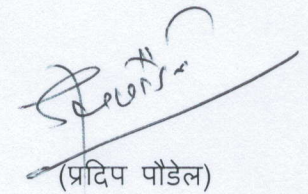 (प्रदिप पौडेल)